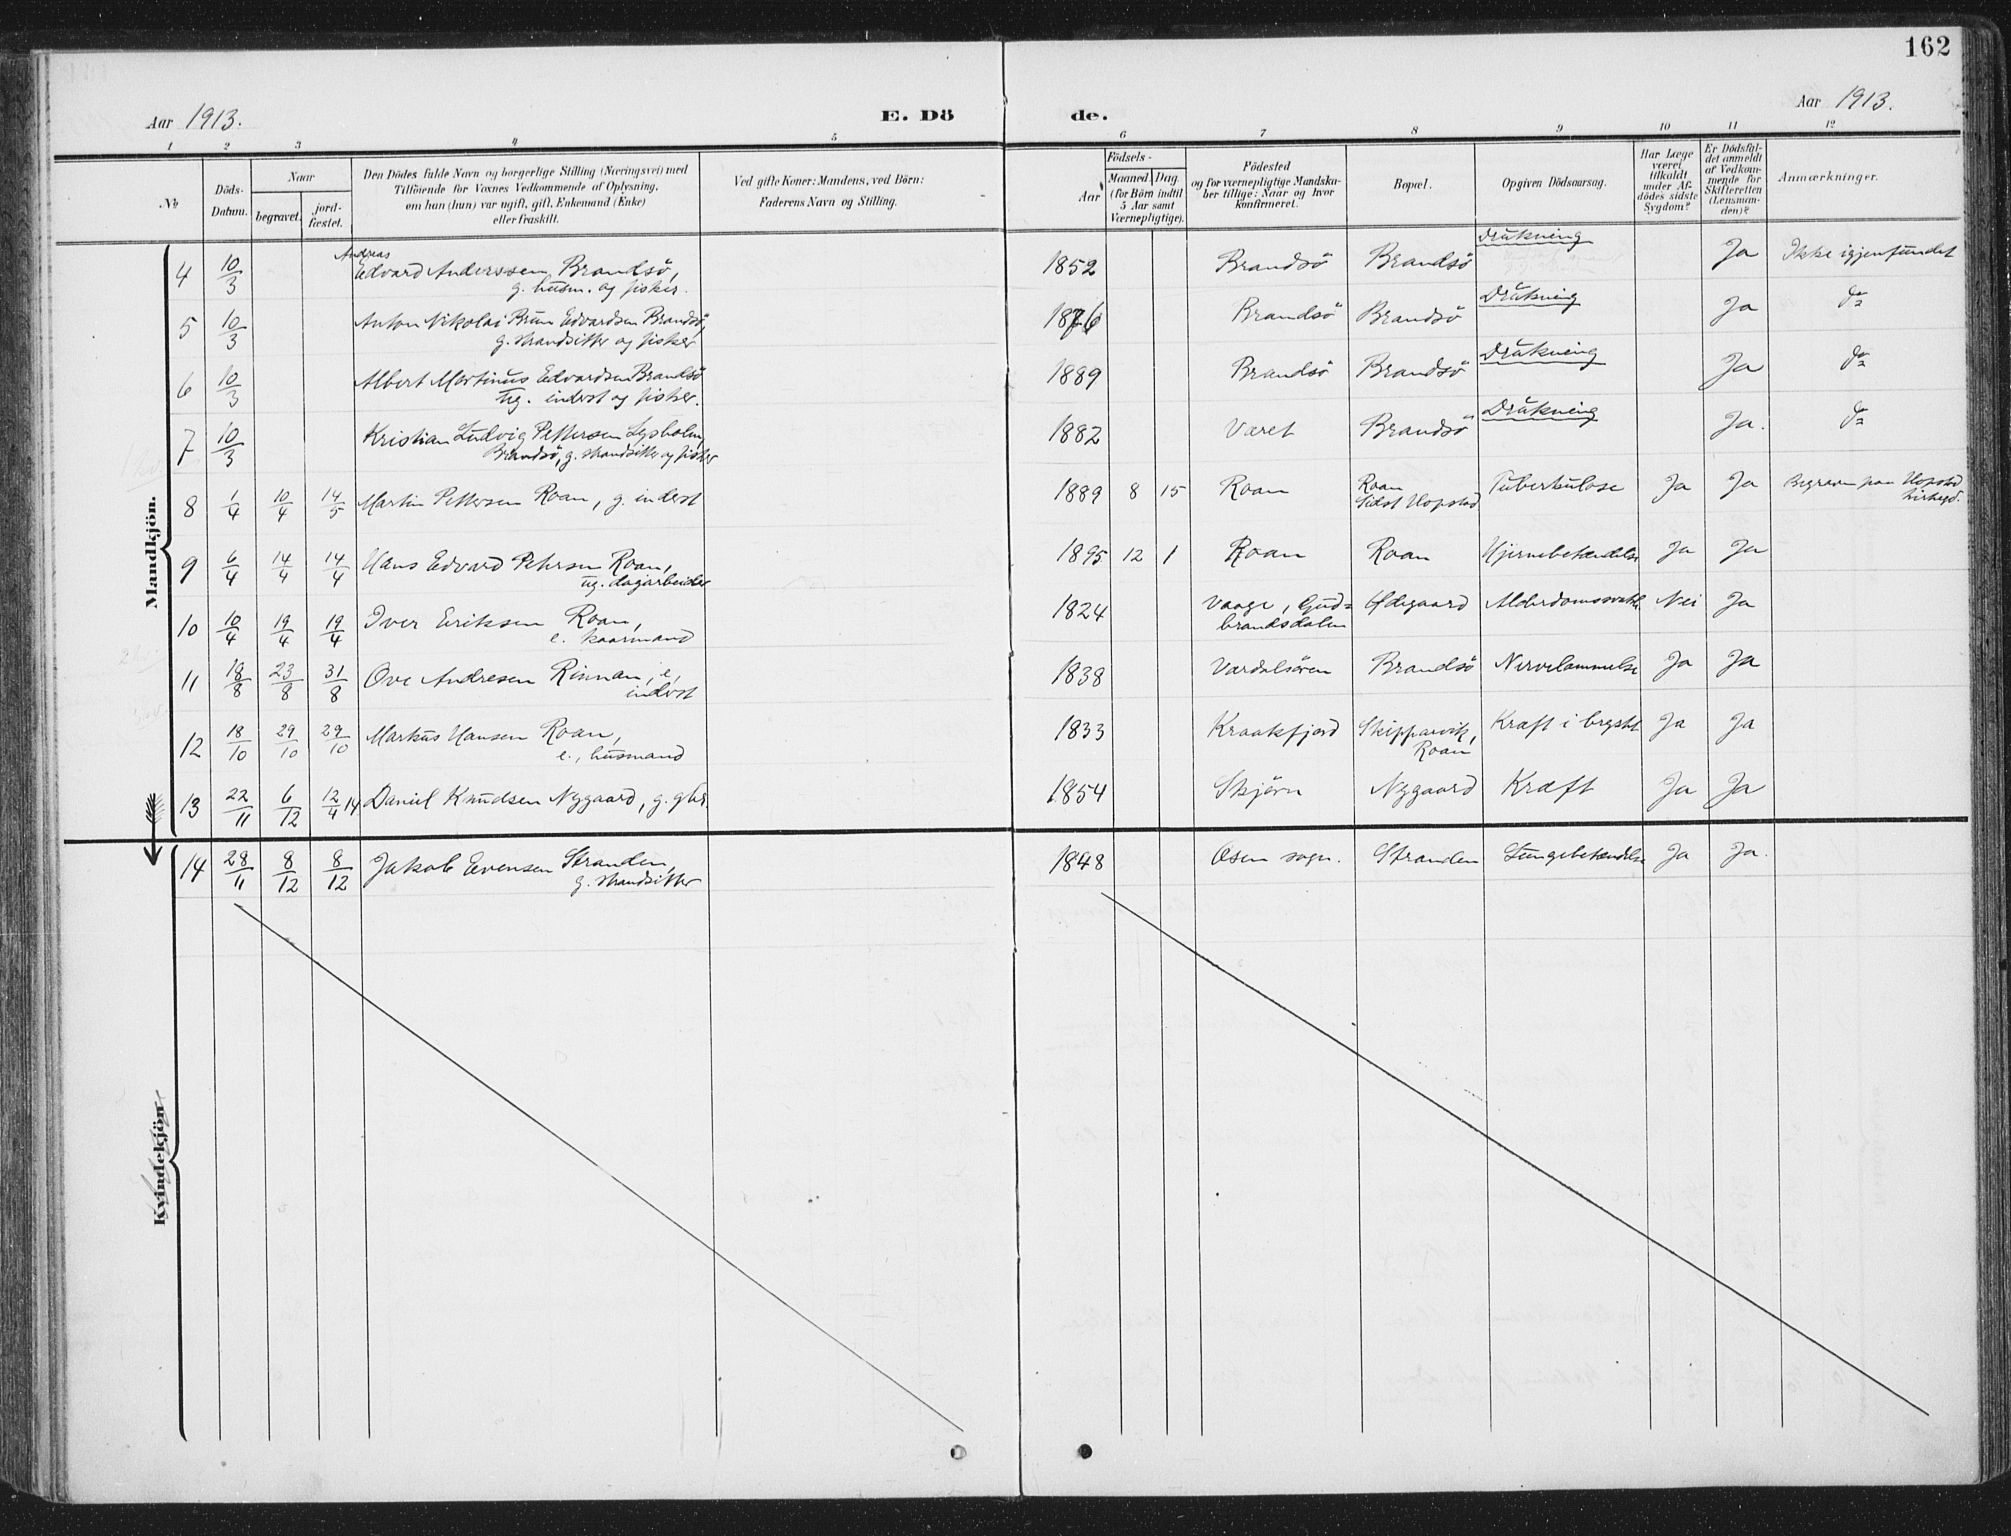 162
Aar 1913. E. Dö de. Aar 1913.
1 2 3 4 5 6 7 8 9 10 11 12
No
Döds-Datum.
Naar
begravet.
jord-fæstet.
Den Dödes fulde Navn og borgerlige Stilling (Næringsvei) med
Tilföiende for Voxnes Vedkommende af Oplysning,
om han (hun) var ugift, gift, Enkemand (Enke)
eller fraskilt.
Ved gifte Koner: Mandens, ved Börn:
Faderens Navn og Stilling.
Födsels-
Aar
Maaned. Dag.
(for Börn indtil
5 Aar samt
Værnepligtige).
Födested
og for værnepligtige Mandska-
ber tillige: Naar og hvor
konfirmeret.
Bopæl.
Opgiven Dödsaarsag.
Har Læge
været
tilkaldt
under Af-
dödes sidste
Sygdom?
Er Dödsfal-
det anmeldt
af Vedkom-
mende for
Skifteretten
(Lensman-
den)?
Anmærkninger.
Mandkjön.
Andreas
4 10/3 Edvard Anderssen Brandsö, 1852 Brandsö Brandsö Drukning Ja Ikke igjenfundet
g. husm. og fisker.
5 10/3 Anton Nikolai Brun Edvardsen Brandsö, 1876 Brandsö Brandsö Drukning Ja do
g. strandsitter og fisker
6 10/3 Albert Martinus Edvardsen Brandsö 1889 Brandsö Brandsö Drukning Ja do
ug. inderst og fisker.
7 10/3 Kristian Ludvig Pettersen Lysholm, 1882 Været Brandsö Drukning Ja. do
Brandsö, g. strandsitter og fisker
8 1/4 10/4 14/5 Martin Pettersen Roan, g. inderst 1889 8 15 Roan Roan Tuberkulose Ja Ja Begraven paa Hopstad
Sidst Hopstad kirkegd.
9 6/4 14/4 14/4 Hans Edvard Petersen Roan, 1895 12 1 Roan Roan Hjernebetændelse Ja Ja
ug. dagarbeider
10 10/4 19/4 19/4 Iver Eriksen Roan, 1824 Vaage, Gud= Ødegaard Alderdomssvakh. Nei Ja
e. kaarmand brandsdalen
11 18/8 23/8 31/8 Ove Andresen Rinnan, e, 1838 Værdalsören Brandsö Nervelammelse Ja Ja
inderst
12 18/10 29/10 29/10 Markus Hansen Roan, 1833 Kraakfjord Skipparvik, Kræft i brystet Ja Ja
e., husmand Roan
13 22/11 6/12 12/4 14 Daniel Knudsen Nygaard, g. gbr. 1854 Skjörn Nygaard Kræft Ja Ja
14 28/11 8/12 8/12 Jakob Evensen Stranden, 1848 Osen sogn. Stranden Lungebetændelse Ja Ja.
g. strandsitter
Kvindekjön